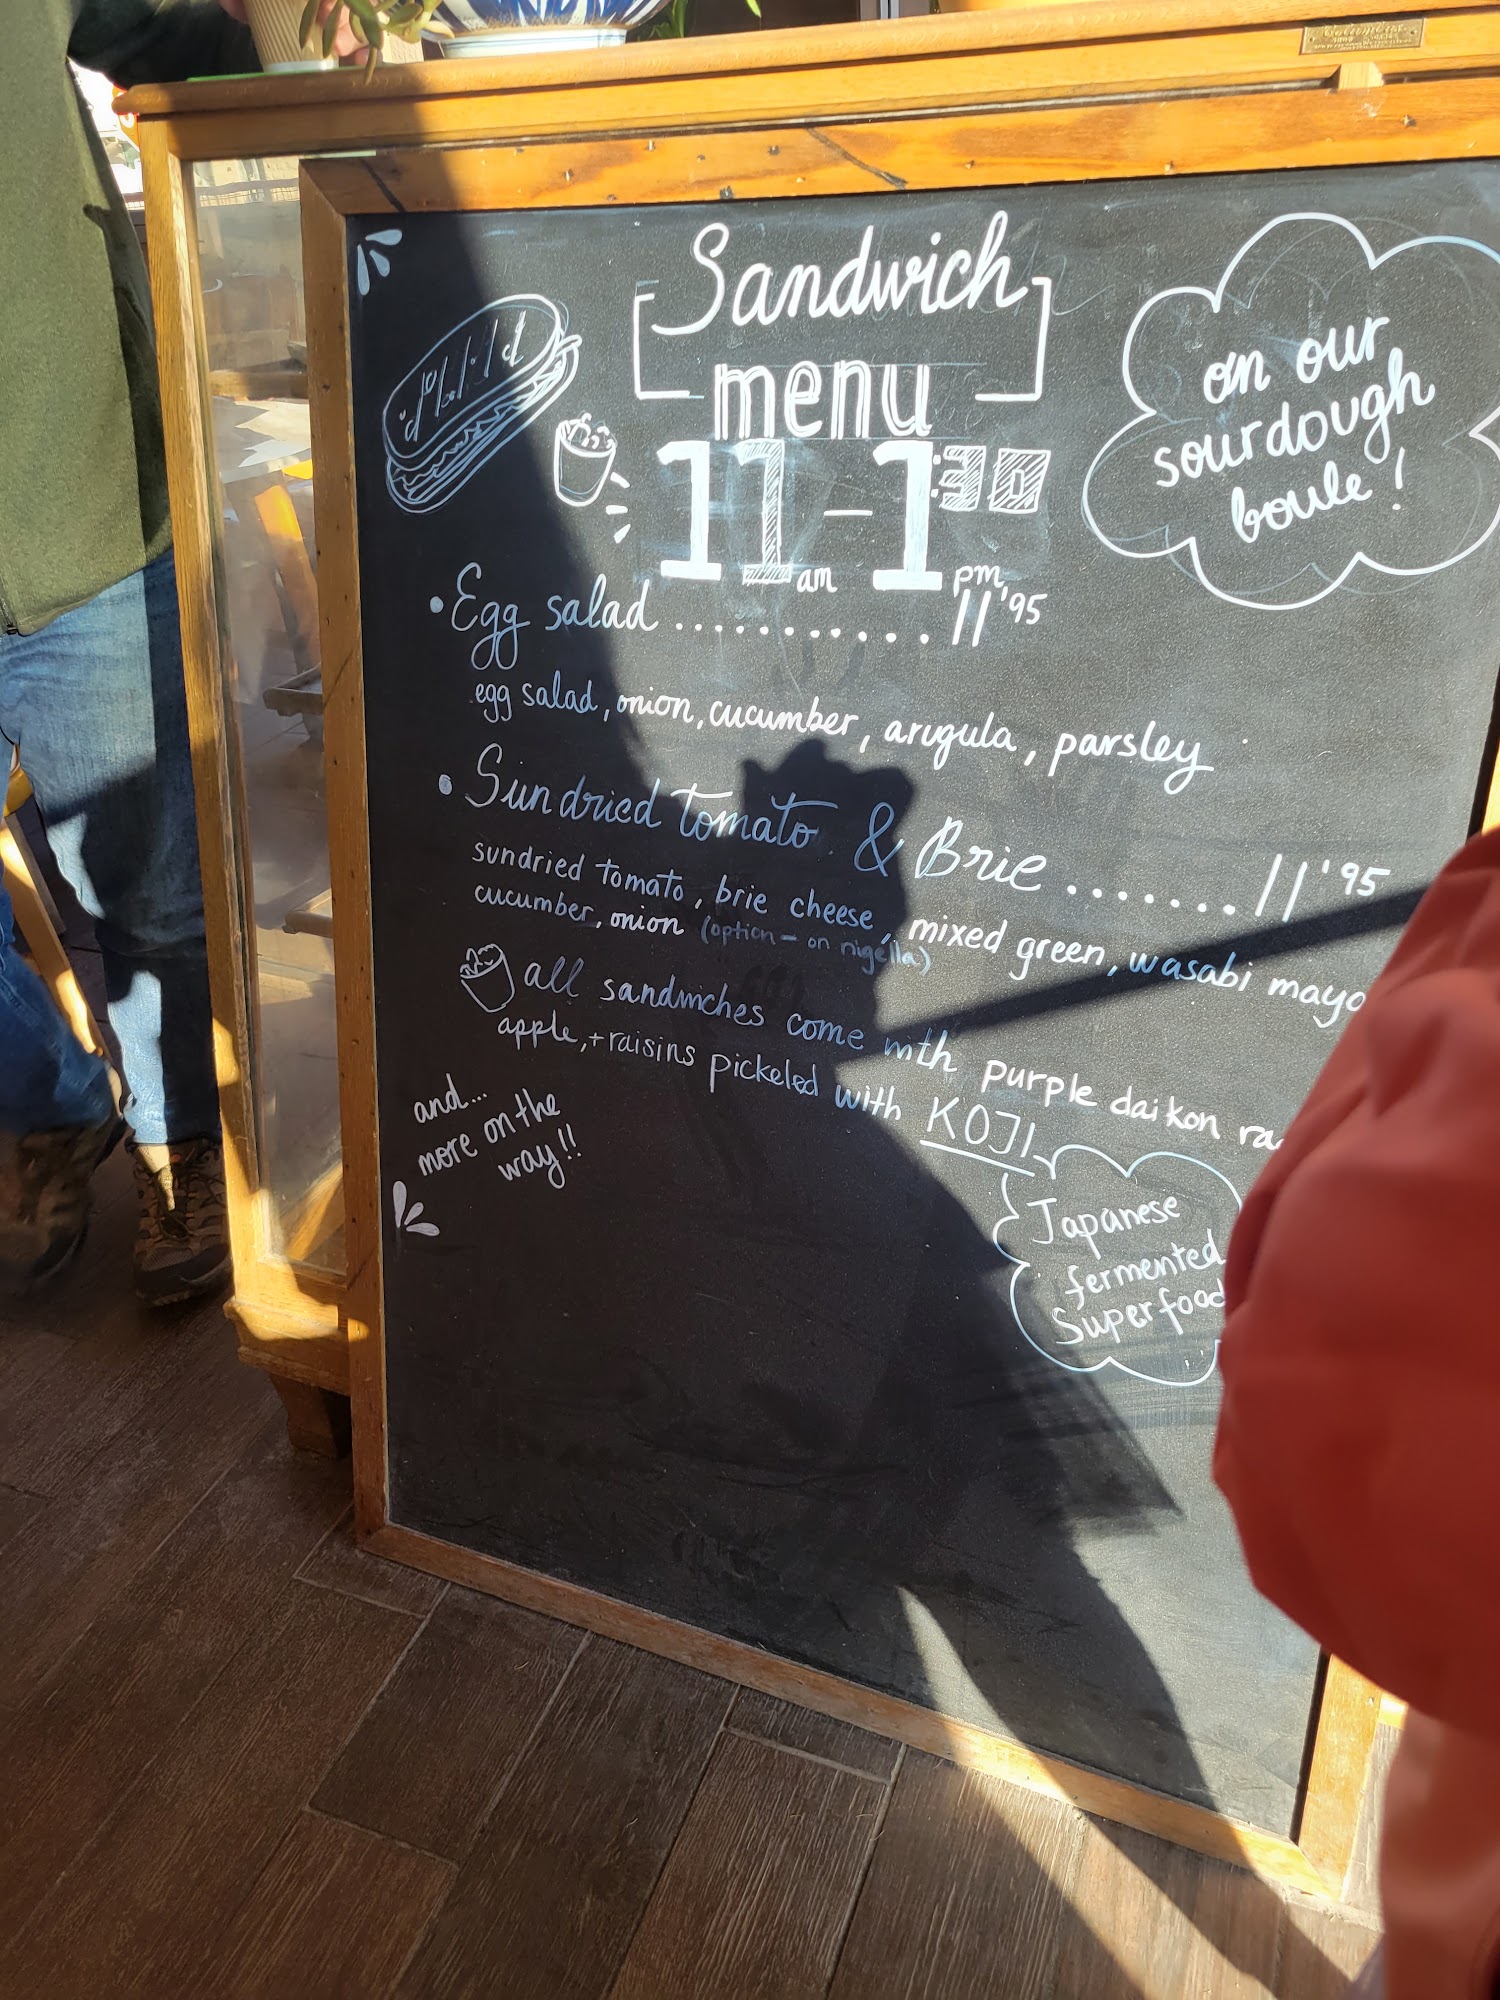 Sandwich
menu
11 am – 1:30 pm
on our
sourdough
boule!
• Egg salad ............ 11'95
egg salad, onion, cucumber, arugula, parsley
• Sundried tomato & Brie ....... 11'95
sundried tomato, brie cheese, mixed green, wasabi mayo
cucumber, onion (option – on nigella)
all sandwiches come with purple daikon
apple, + raisins pickeled with KOJI
Japanese
fermented
Superfood
and...
more on the
way!!